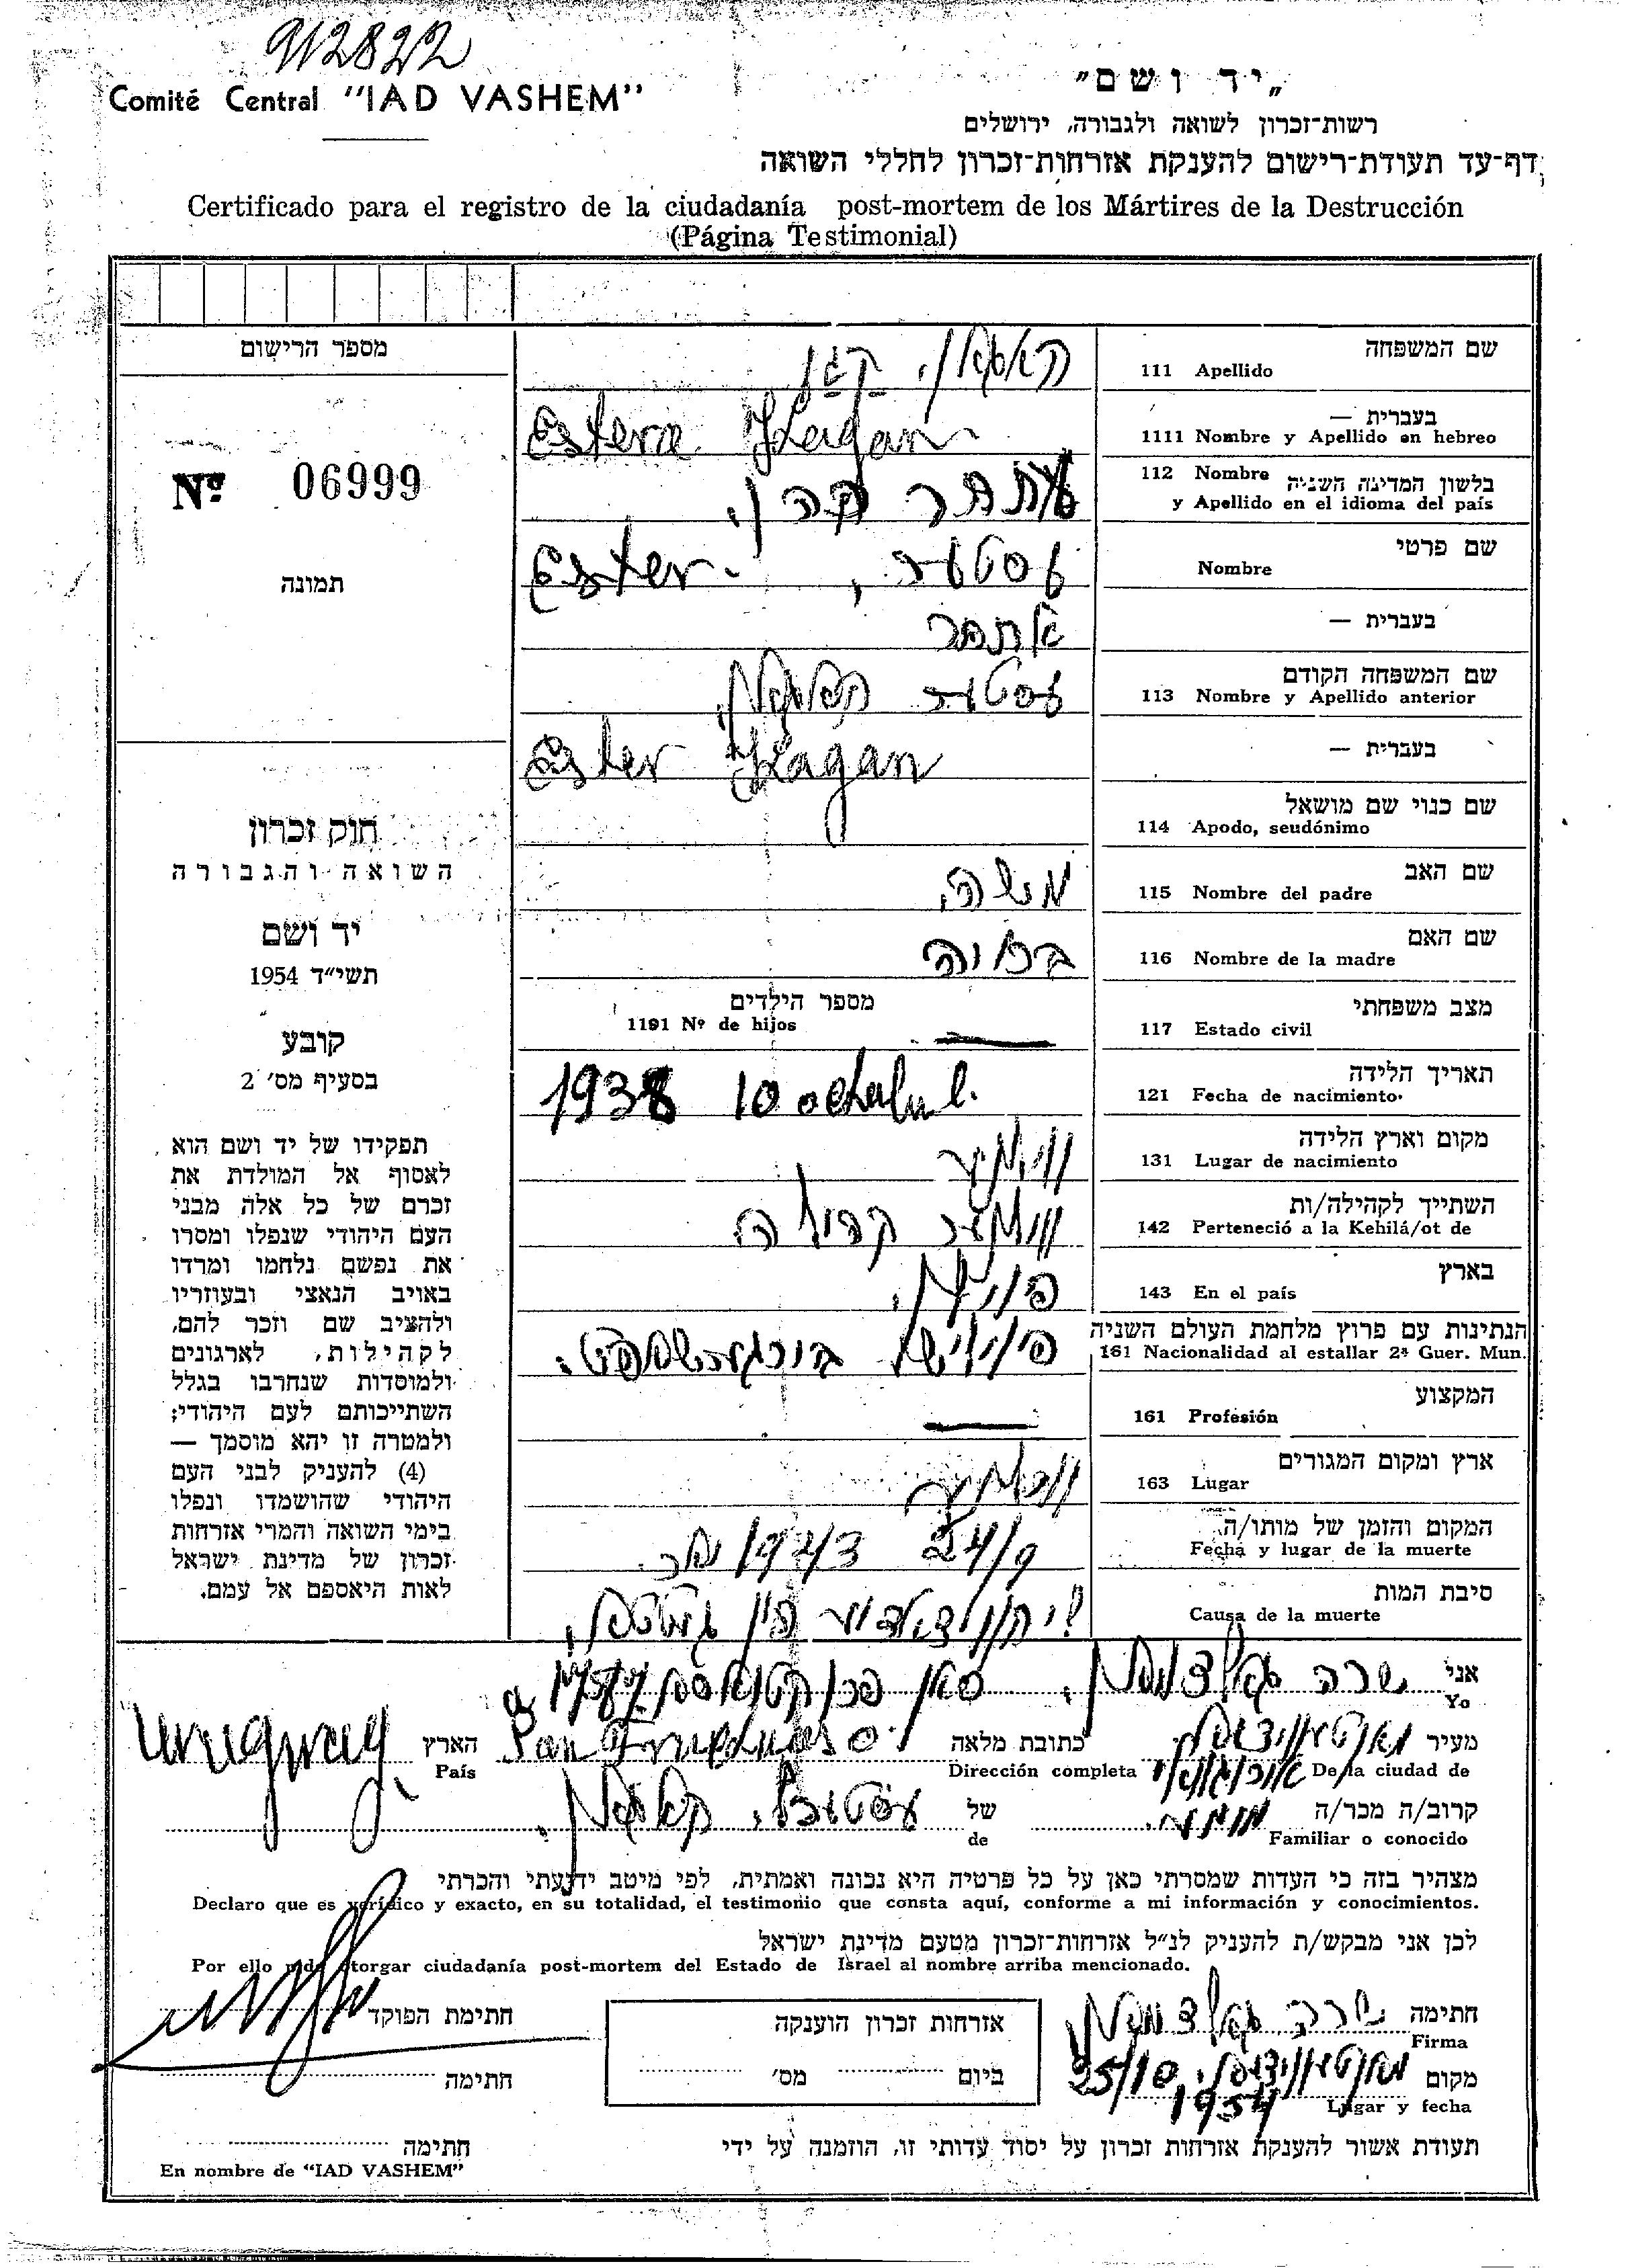 912822
Comité Central "IAD VASHEM"
„יד ושם"
רשות־זכרון לשואה ולגבורה, ירושלים
דף־עד תעודת־רישום להענקת אזרחות־זכרון לחללי השואה
Certificado para el registro de la ciudadanía post-mortem de los Mártires de la Destrucción
(Página Testimonial)
שם המשפחה
111 Apellido
קאגאן, קגן
בעברית —
1111 Nombre y Apellido en hebreo
Estera Kagan
112 Nombre בלשון המדינה השניה
y Apellido en el idioma del país
שם פרטי
Nombre
עסטער, Ester.
בעברית —
אסתר
שם המשפחה הקודם
113 Nombre y Apellido anterior
עסטער קאגאן,
בעברית —
Ester Kagan
שם כנוי שם מושאל
114 Apodo, seudónimo
שם האב
115 Nombre del padre
משה,
שם האם
116 Nombre de la madre
מצב משפחתי
117 Estado civil
מספר הילדים
1191 Nº de hijos
תאריך הלידה
121 Fecha de nacimiento
1938 10
מקום וארץ הלידה
131 Lugar de nacimiento
השתייך לקהילה/ות
142 Perteneció a la Kehilá/ot de
בארץ
143 En el país
פוילן.
הנתינות עם פרוץ מלחמת העולם השניה
161 Nacionalidad al estallar 2ª Guer. Mun.
פויליש בירגערשאפט.
המקצוע
161 Profesión
ארץ ומקום המגורים
163 Lugar
המקום והזמן של מותו/ה
Fecha y lugar de la muerte
24/9 1943
סיבת המות
Causa de la muerte
מספר הרישום
Nº 06999
תמונה
חוק זכרון
השואה והגבורה
יד ושם
תשי״ד 1954
קובע
בסעיף מס׳ 2
תפקידו של יד ושם הוא
לאסוף אל המולדת את
זכרם של כל אלה מבני
העם היהודי שנפלו ומסרו
את נפשם נלחמו ומרדו
באויב הנאצי ובעוזריו
ולהציב שם וזכר להם,
לקהילות, לארגונים
ולמוסדות שנחרבו בגלל
השתייכותם לעם היהודי;
ולמטרה זו יהא מוסמך —
(4) להעניק לבני העם
היהודי שהושמדו ונפלו
בימי השואה והמרי אזרחות
זכרון של מדינת ישראל
לאות היאספם אל עמם.
אני שרה גאלדמאן,
Yo
מעיר מאנטעווידעא כתובת מלאה הארץ Uruguay
De la ciudad de Dirección completa País
קרוב/ה מכר/ה מומע. של קאגאן.
Familiar o conocido de
מצהיר בזה כי העדות שמסרתי כאן על כל פרטיה היא נכונה ואמתית, לפי מיטב ידיעתי והכרתי
Declaro que es verídico y exacto, en su totalidad, el testimonio que consta aquí, conforme a mi información y conocimientos.
לכן אני מבקש/ת להעניק לנ״ל אזרחות־זכרון מטעם מדינת ישראל
Por ello pido otorgar ciudadanía post-mortem del Estado de Israel al nombre arriba mencionado.
חתימה שרה גאלדמאן
Firma
מקום מאנטעווידעא, 25/10
Lugar y fecha 1954
אזרחות זכרון הוענקה
ביום מס׳
חתימת הפוקד
חתימה
תעודת אשור להענקת אזרחות זכרון על יסוד עדותי זו, הוזמנה על ידי
חתימה
En nombre de "IAD VASHEM"